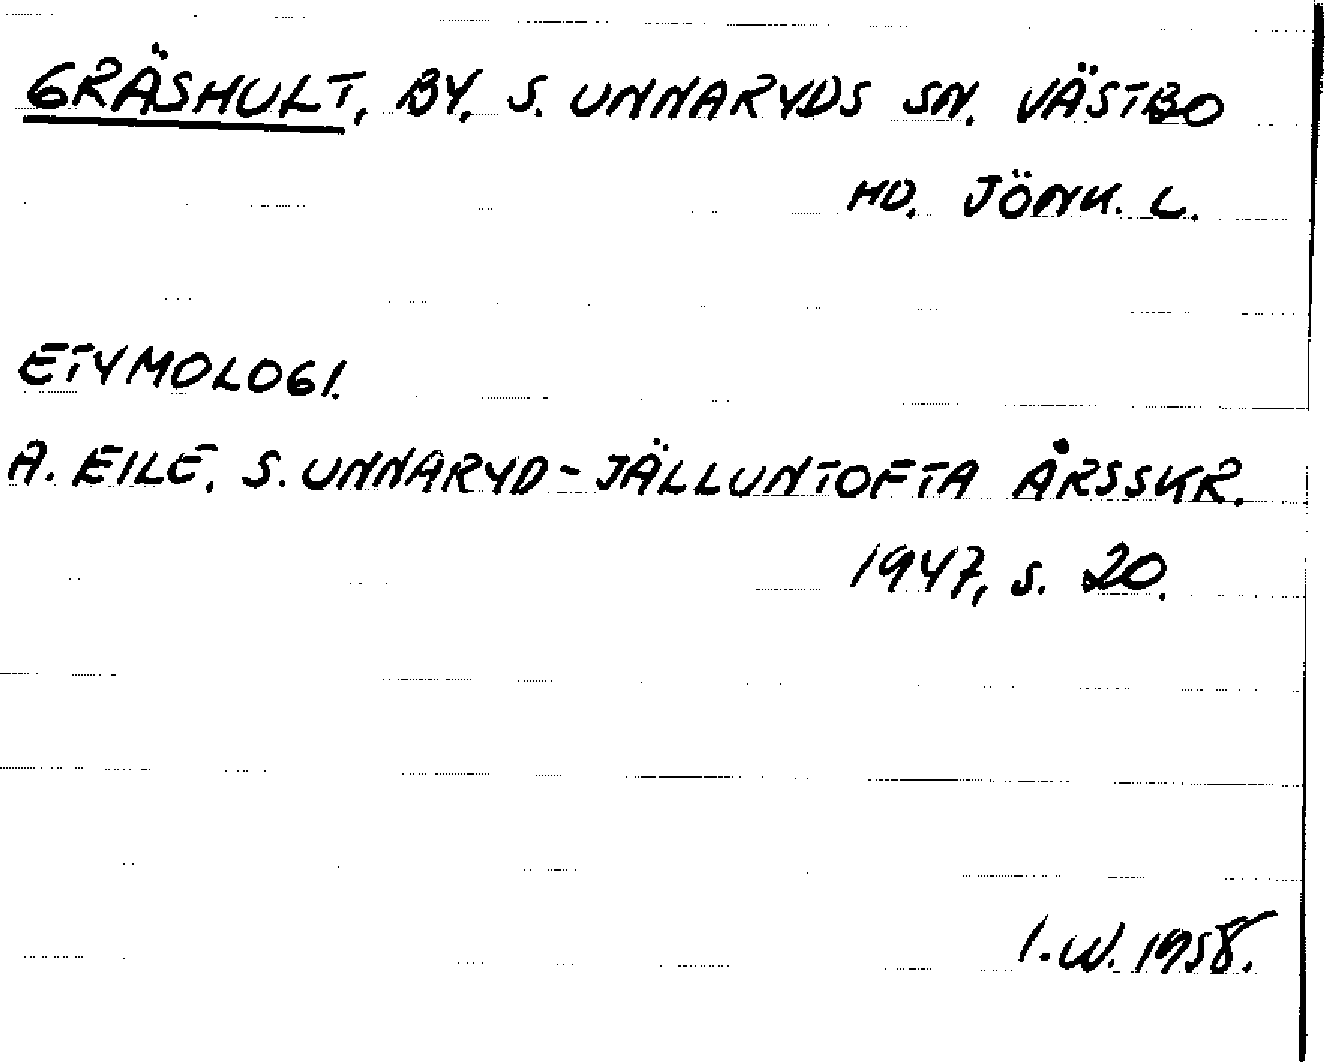 GRÄSHULT, BY, S. UNNARYDS SN. VÄSTBO
HD. JÖNK. L.
ETYMOLOGI.
A. EILE, S. UNNARYD-JÄLLUNTOFTA ÅRSSKR.
1947, s. 20.
I.W. 1958.